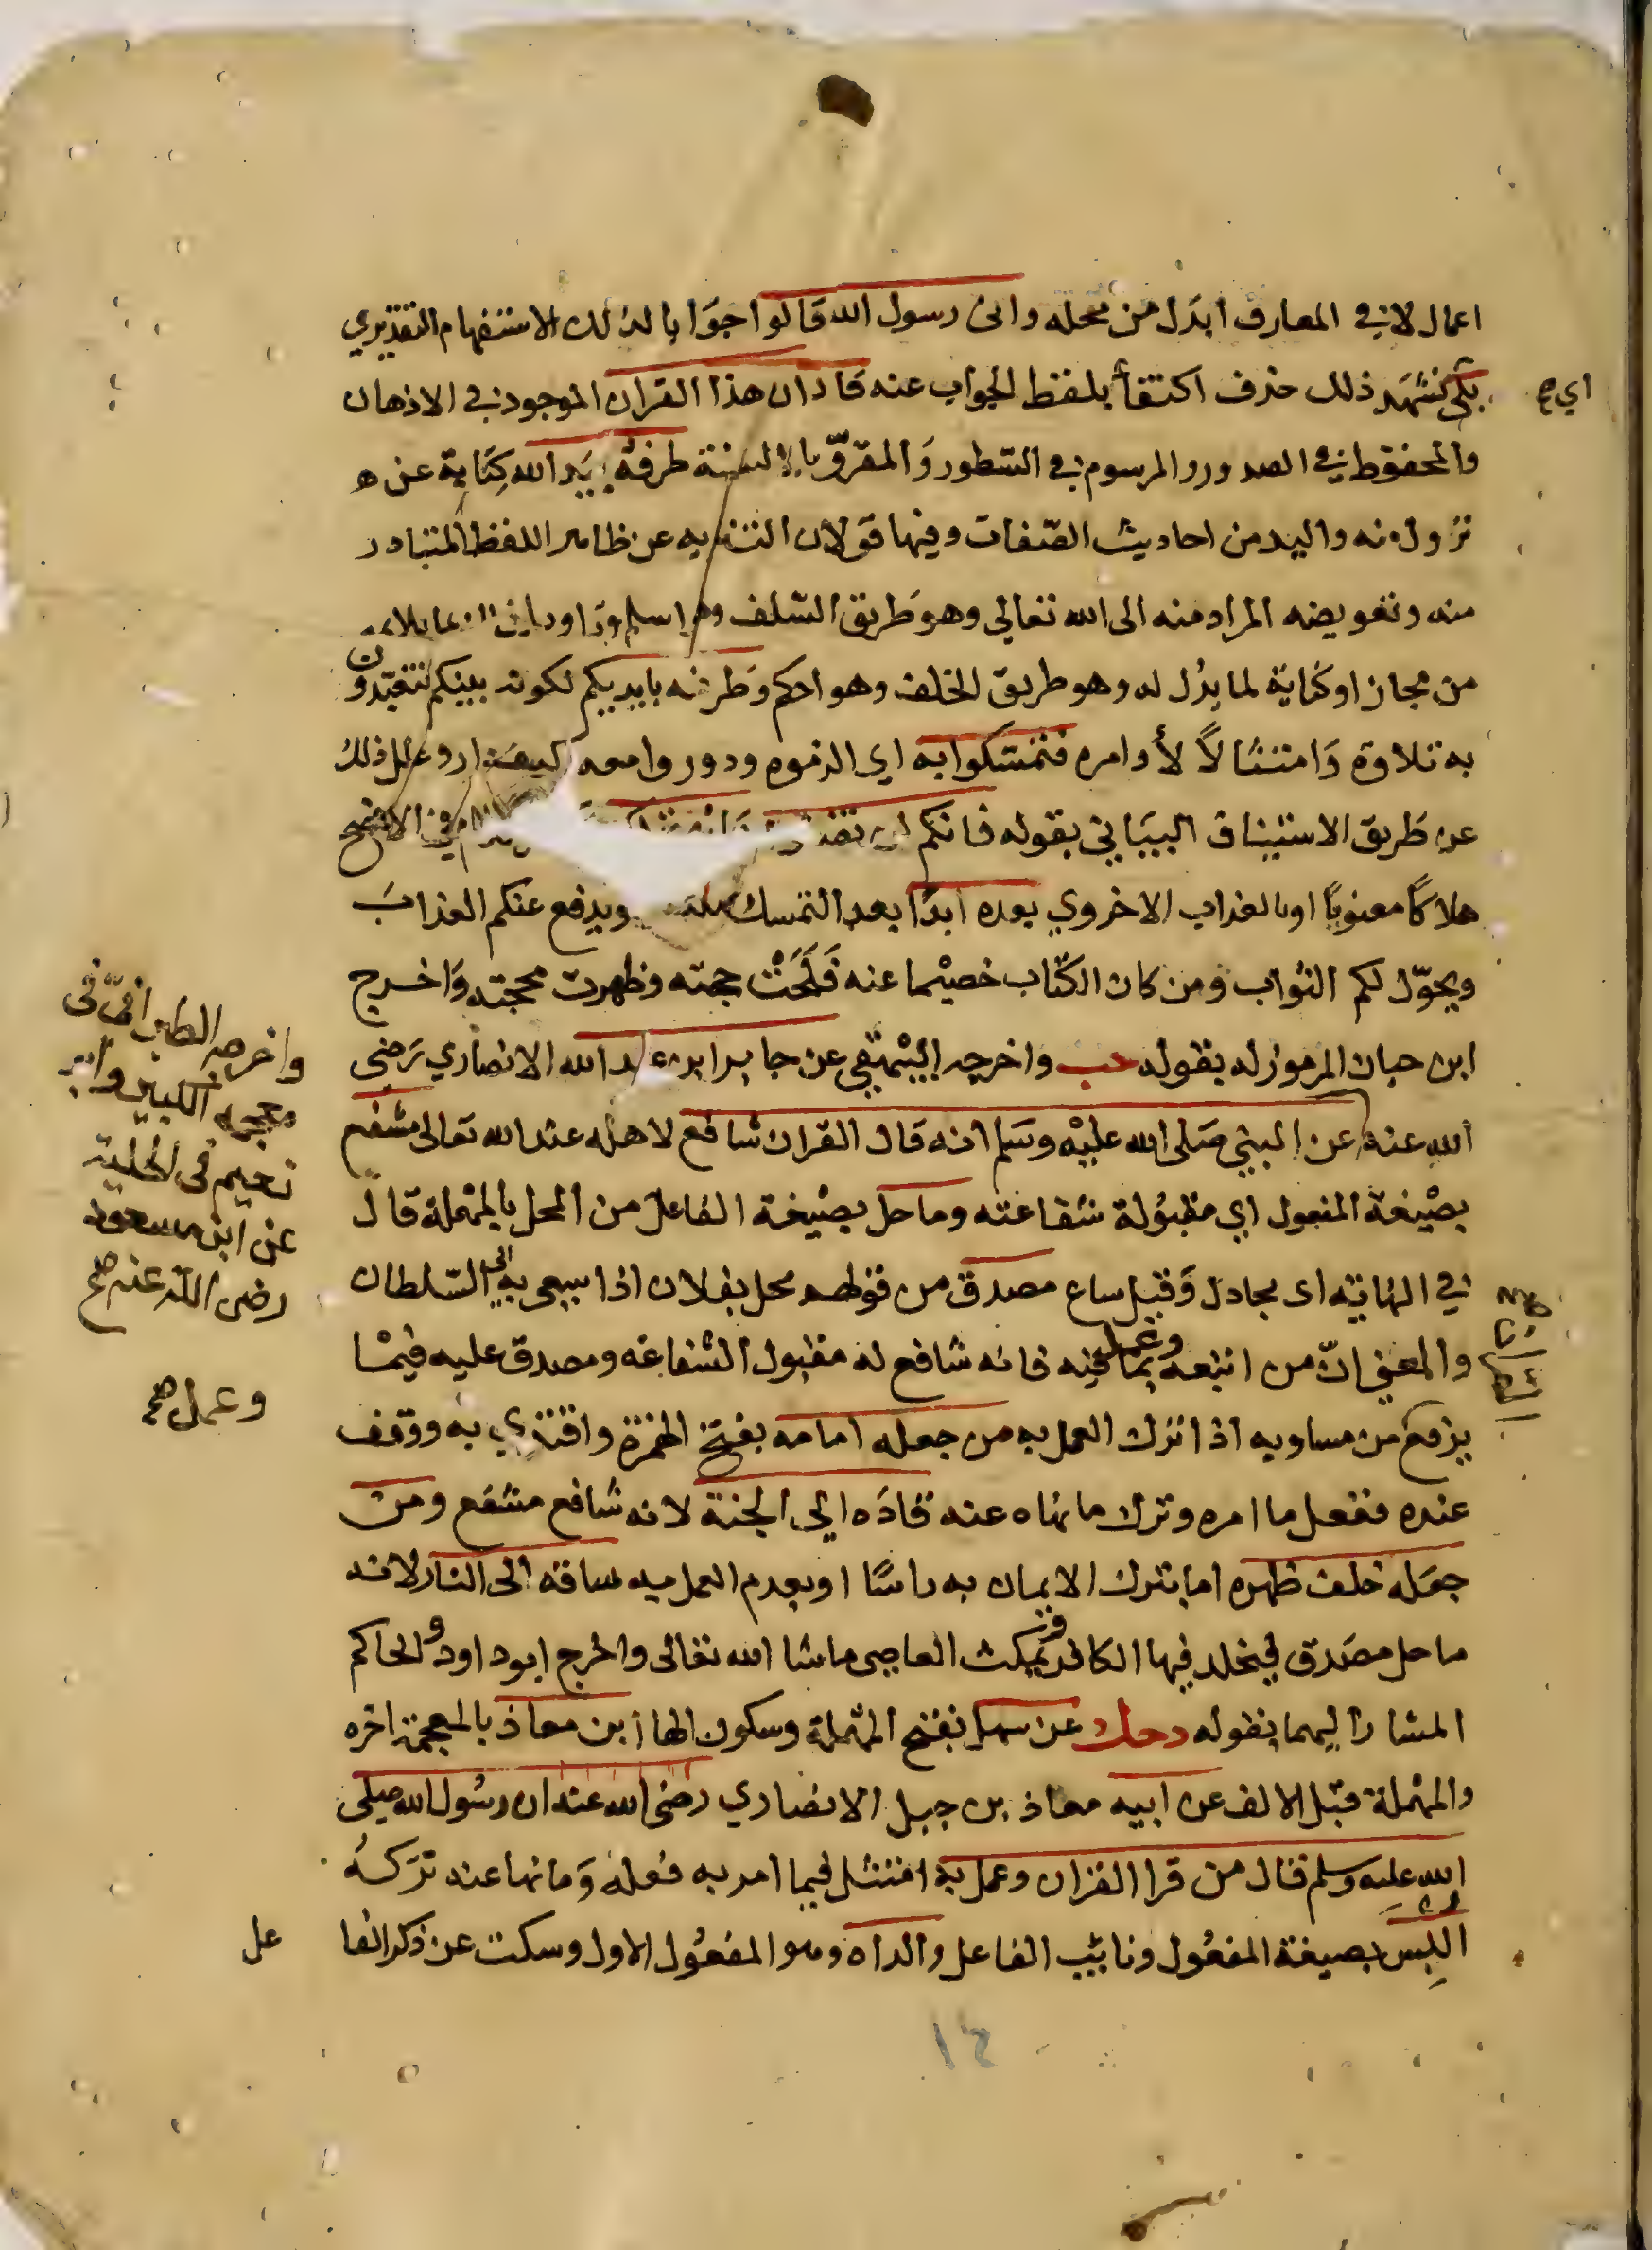 اعمال لا في المعارف ابدل من محله وانى رسول الله قالوا جوابا لذلك الاستفهام التقديري
بلى نشهد ذلك حذف اكتفأ بلفظ الجواب عنه قال ان هذا القران الموجود في الاذهان
اي صح
والمحفوظ في الصدور والمرسوم في السطور والمقرو بالالسنة طرفه بيد الله كناية عن
نزوله منه واليد من احاديث الصفات وفيها قولان التنزيه عن ظاهر اللفظ المتبادر
منه وتفويضه المراد منه الى الله تعالى وهو طريق السلف وهو اسلم
من مجاز او كناية لما يدل له وهو طريق الخلف وهو احكم وطرفه بايديكم لكونه بينكم تتعبدون
به تلاوة وامتثالاً لأوامره فتمسكوا به اي الزموه ودوروا معه كيف دار وعلل ذلك
عن طريق الاستيناف البياني بقوله فانكم لن تضلوا
هلاكًا معنويًا او بالعذاب الاخروي بعده ابدًا بعد التمسك ويدفع عنكم العذاب
ويحوّل لكم الثواب ومن كان الكتاب خصيما عنه فلحت حجته وظهرت محجته واخرج
ابن حبان المرموز له بقوله حب واخرجه البيهقي عن جابر ابن عبد الله الانصاري رضى
الله عنه عن النبي صلى الله عليه وسلم انه قال القران شافع لاهله عند الله تعالى مشفع
بصيغة المفعول اي مقبولة شفاعته وماحل بصيغة الفاعل من المحل بالمهملة قال
في النهاية اى مجادل وقيل ساع مصدق من قولهم محل بفلان اذا سعى به الى السلطان
والمعنى انّ من اتبعه وعمل بما فيه فانه شافع له مقبول الشفاعة ومصدق عليه فيما
يرفع من مساويه اذا ترك العمل به من جعله امامه بفتح الهمزة واقتدي به ووقف
عنده ففعل ما امره وترك ما نهاه عنه قاده الى الجنة لانه شافع مشفع ومن
جعله خلف ظهره اما بترك الايمان به راسًا او بعدم العمل به ساقه الى النار لانه
ماحل مصدق فيخلد فيها الكافر ويمكث العاصى ماشا الله تعالى واخرج ابو داود والحاكم
المشار اليهما بقوله دحك عن سهل بفتح المهملة وسكون الها ابن معاذ بالمعجمة اخره
والمهملة قبل الالف عن ابيه معاذ بن جبل الانصاري رضى الله عنه ان رسول الله صلى
الله عليه وسلم قال من قرا القران وعمل به امتثل فيما امر به فعله وما نها عنه تركه
اُلبِس بصيغة المفعول ونايب الفاعل والداه وهو المفعول الاول وسكت عن ذكر الفا
عل
واخرجه الطبراني فى
معجمه الكبير وابو
نعيم فى الحلية
عن ابن مسعود
رضى الله عنه صح
وعمل صح
١٤